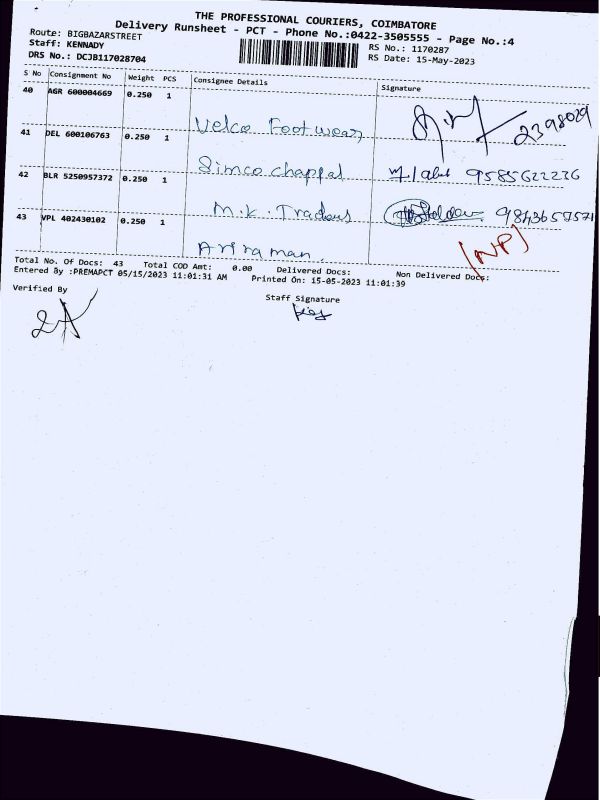 THE PROFESSIONAL COURIERS, COIMBATORE
Delivery Runsheet - PCT - Phone No.:0422-3505555 - Page No.:4
Route: BIGBAZARSTREET
RS No.: 1170287
Staff: KENNADY
RS Date: 15-May-2023
DRS No.: DCJB117028704
S No Consignment No Weight PCS Consignee Details Signature
40 AGR 600004669 0.250 1
Velco Footwear 2398029
41 DEL 600106763 0.250 1
Simco chappal 9585622236
42 BLR 5250957372 0.250 1
M.K. Traders
43 VPL 402430102 0.250 1
[NP]
Total No. Of Docs: 43 Total COD Amt: 0.00 Delivered Docs: Non Delivered Docs:
Entered By :PREMAPCT 05/15/2023 11:01:31 AM Printed On: 15-05-2023 11:01:39
Verified By
Staff Signature